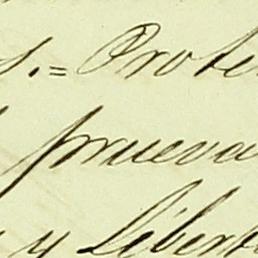 s.= Prote
prueva
y Libert